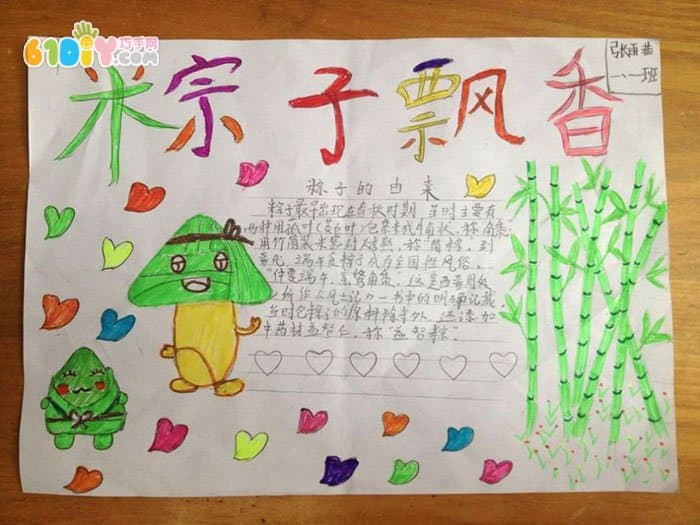 61DIY巧手网
.com
粽子飘香
张雨
一、一班
粽子的由来
粽子最早出现在春秋时期，当时主要有
两种用菰叶(茭白叶)包黍米成牛角状，称"角黍"
用竹筒装米密封烤熟，称"筒粽"。到
晋代，端午吃粽子成为全国性风俗。
"仲夏端午，烹鹜角黍，这是西晋周处
《风土记》一书中的明确记载
当时包粽子的原料除米外，还添加
中药材益智仁，称"益智粽"